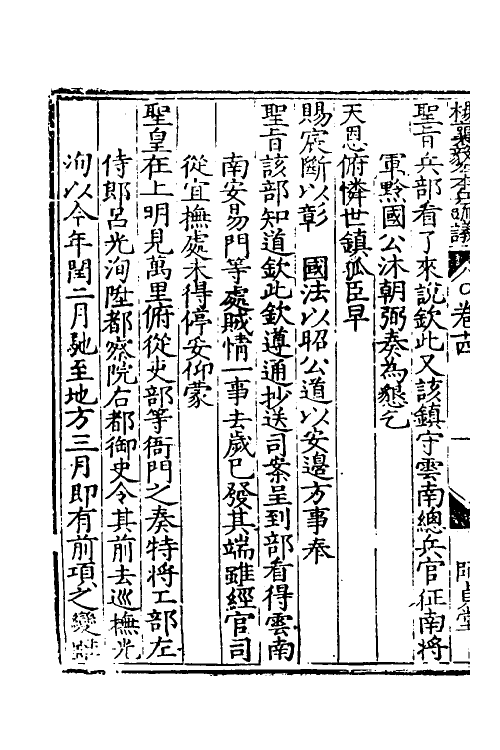 楊襄毅公本兵疏議 卷十四 一 師貞堂
聖旨兵部看了來說欽此又該鎮守雲南總兵官征南將
軍黔國公沐朝弼奏為懇乞
天恩俯憐世鎮孤臣早
賜宸斷以彰 國法以昭公道以安邊方事奉
聖旨該部知道欽此欽遵通抄送司案呈到部看得雲南
南安易門等處賊情一事去歲已發其端雖經官司
從宜撫處未得停妥仰蒙
聖皇在上明見萬里俯從吏部等衙門之奏特將工部左
侍郎呂光洵陞都察院右都御史令其前去巡撫光
洵以今年閏二月馳至地方三月即有前項之變